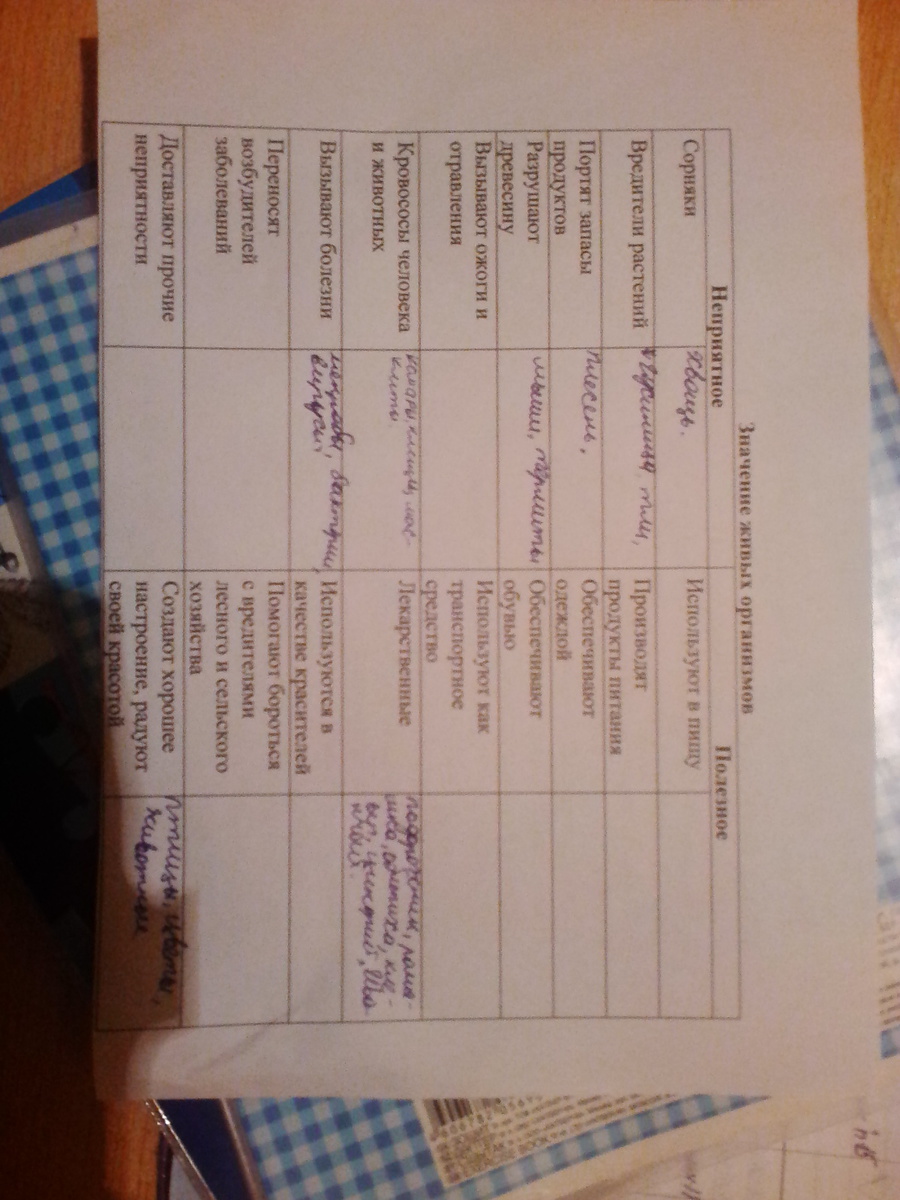 Значение живых организмов
Неприятное
Полезное
Сорняки
хвощ.
Используют в пищу
Вредители растений
гусеницы, тли,
Производят
продукты питания
Портят запасы
продуктов
плесень.
Обеспечивают
одеждой
Разрушают
древесину
мыши, термиты
Обеспечивают
обувью
Вызывают ожоги и
отравления
Используют как
транспортное
средство
Кровососы человека
и животных
комары, клещи, мос-
киты.
Лекарственные
подорожник, рома-
шка, облепиха,
Вызывают болезни
микробы, бактерии,
вирусы,
Используются в
качестве красителей
Переносят
возбудителей
заболеваний
Помогают бороться
с вредителями
лесного и сельского
хозяйства
Доставляют прочие
неприятности
Создают хорошее
настроение, радуют
своей красотой
птицы, цветы,
животные